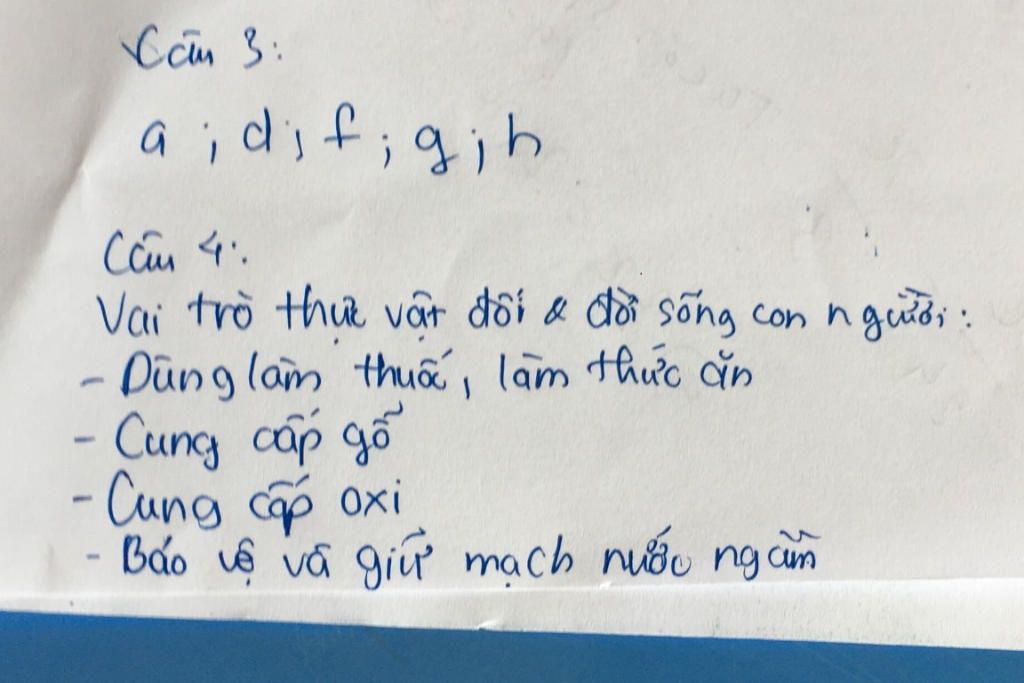 Câu 3:
a ; d ; f ; g ; h
Câu 4:
Vai trò thực vật đối & đời sống con người:
- Dùng làm thuốc, làm thức ăn
- Cung cấp gỗ
- Cung cấp oxi
- Bảo vệ và giữ mạch nước ngầm